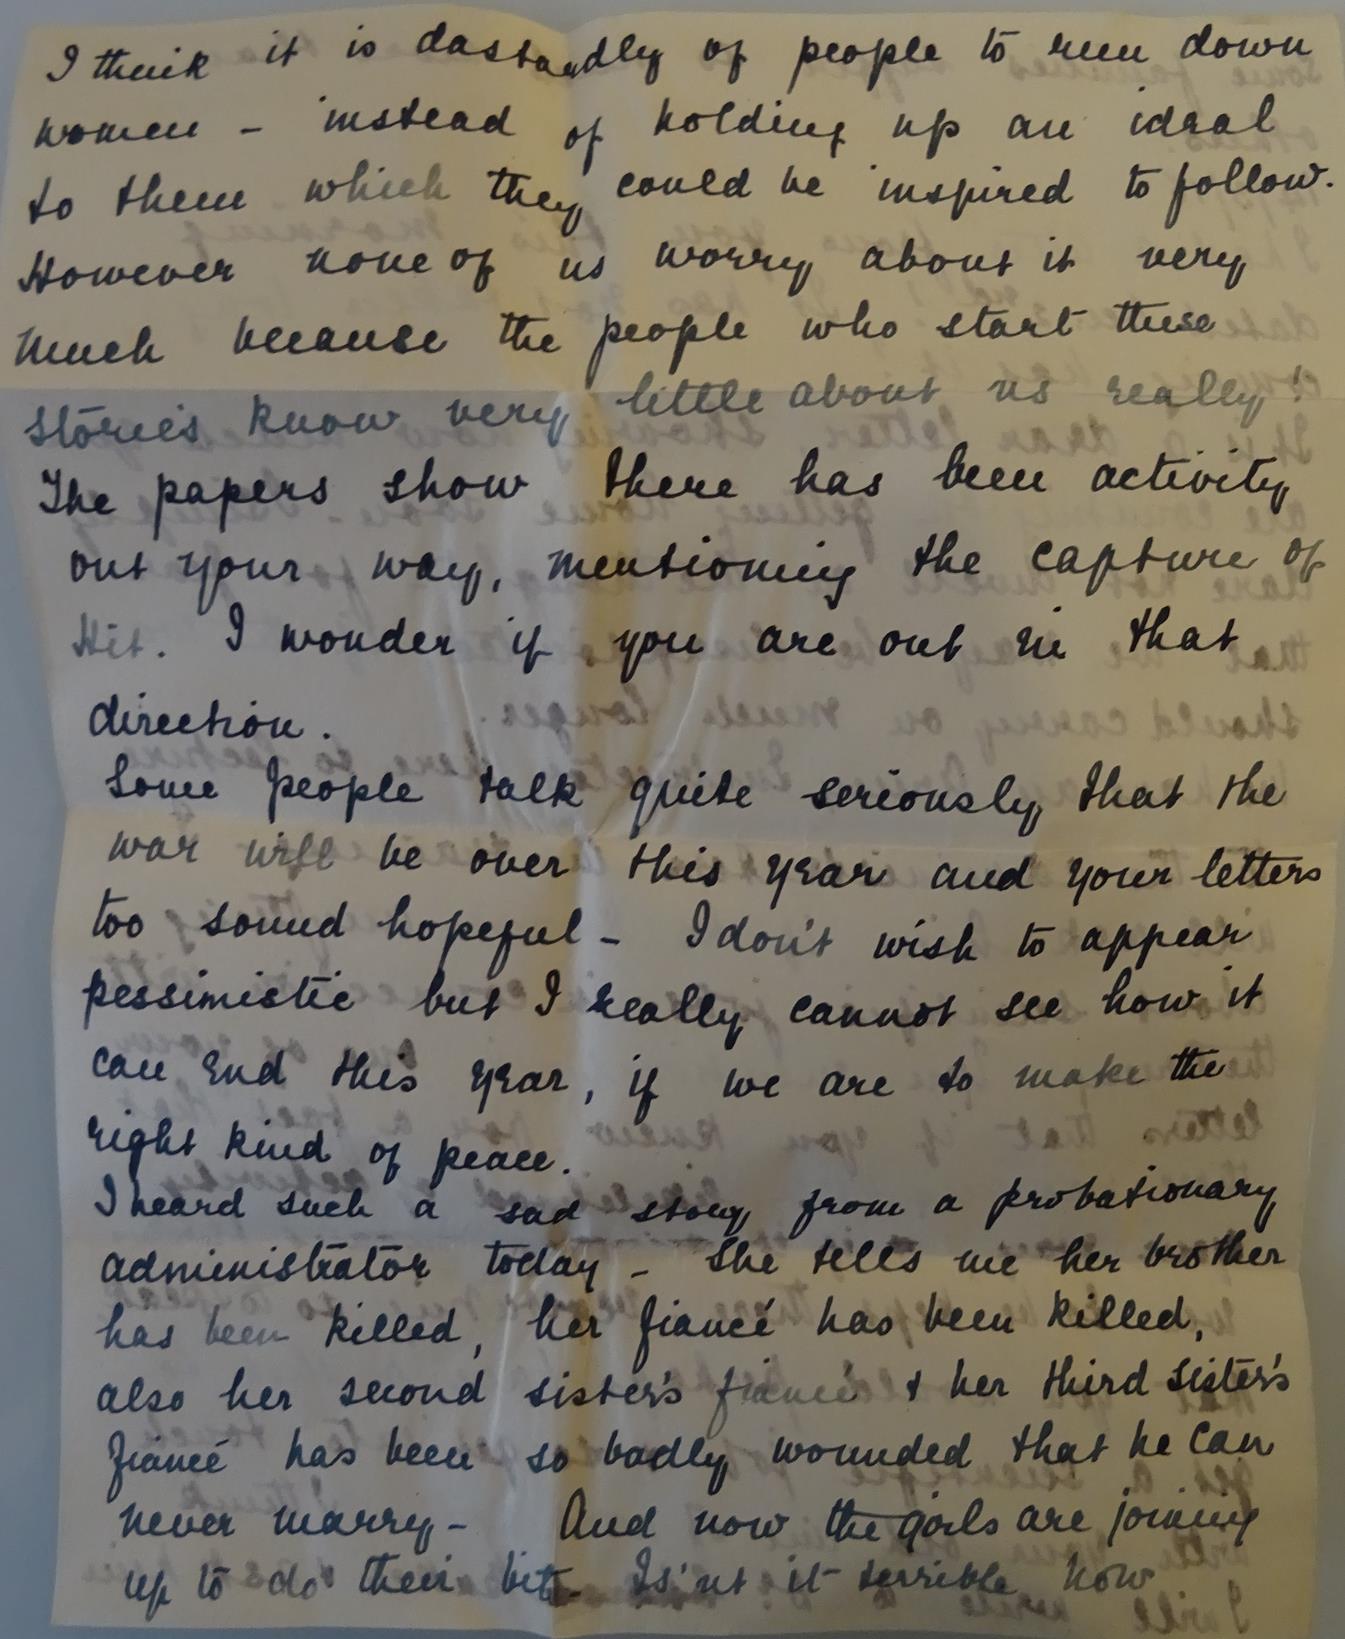 I think it is dastardly of people to run down
women - instead of holding up an ideal
to them which they could be inspired to follow.
However none of us worry about it very
much because the people who start these
stories know very little about us really!
The papers show there has been activity
out your way, mentioning the capture of
Hit. I wonder if you are out in that
direction.
Some people talk quite seriously that the
war will be over this year and your letters
too sound hopeful - I don't wish to appear
pessimistic but I really cannot see how it
can end this year, if we are to make the
right kind of peace.
I heard such a sad story from a probationary
administrator today - She tells me her brother
has been killed, her fiancé has been killed,
also her second sister's fiancé & her third sister's
fiancé has been so badly wounded that he can
never marry - And now the girls are joining
up to do their bit - Is'nt it terrible how